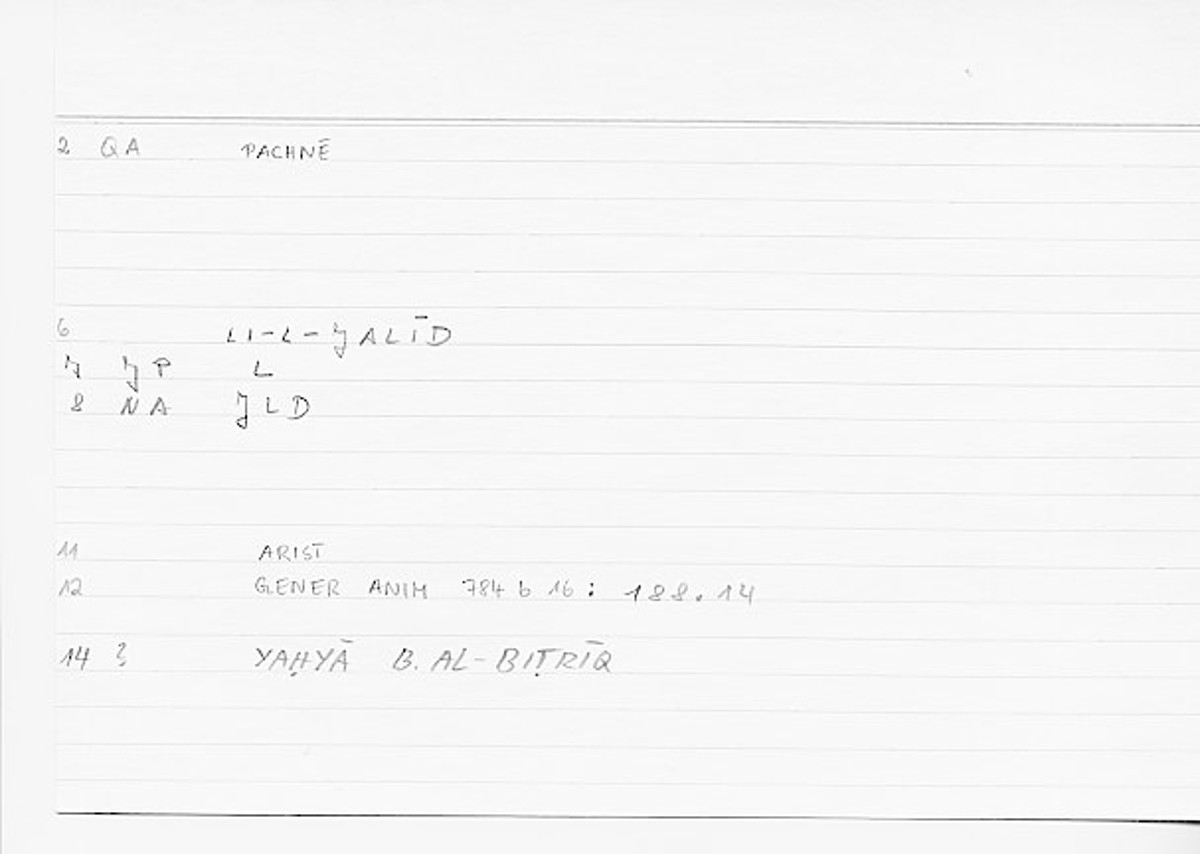 2 QA PACHNĒ
6 LI-L-JALĪD
7 JP L
8 NA JLD
11 ARIST
12 GENER ANIM 784 b 16 : 188.14
14 ? YAḤYĀ B. AL-BIṬRĪQ